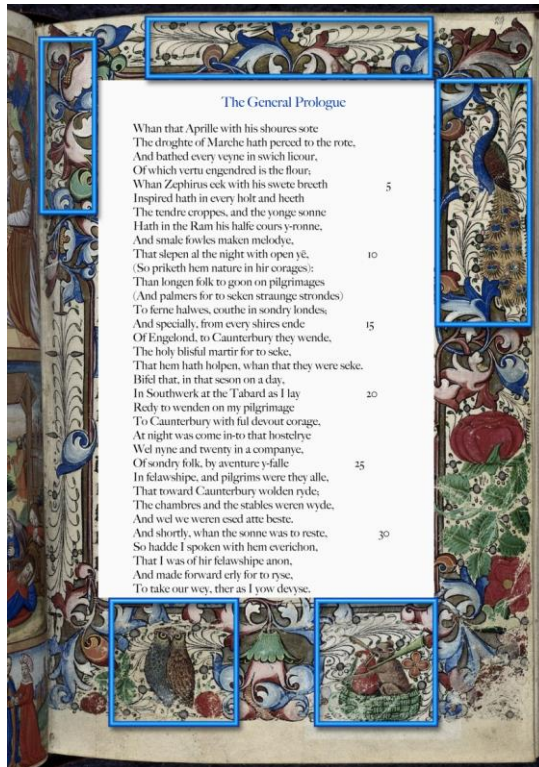 The General Prologue
Whan that Aprille with his shoures sote
The droghte of Marche hath perced to the rote,
And bathed every veyne in swich licour,
Of which vertu engendred is the flour;
Whan Zephirus eek with his swete breeth 5
Inspired hath in every holt and heeth
The tendre croppes, and the yonge sonne
Hath in the Ram his halfe cours y-ronne,
And smale fowles maken melodye,
That slepen al the night with open yë, 10
(So priketh hem nature in hir corages):
Than longen folk to goon on pilgrimages
(And palmers for to seken straunge strondes)
To ferne halwes, couthe in sondry londes;
And specially, from every shires ende 15
Of Engelond, to Caunterbury they wende,
The holy blisful martir for to seke,
That hem hath holpen, whan that they were seke.
Bifel that, in that seson on a day,
In Southwerk at the Tabard as I lay 20
Redy to wenden on my pilgrimage
To Caunterbury with ful devout corage,
At night was come in-to that hostelrye
Wel nyne and twenty in a companye,
Of sondry folk, by aventure y-falle 25
In felawshipe, and pilgrims were they alle,
That toward Caunterbury wolden ryde;
The chambres and the stables weren wyde,
And wel we weren esed atte beste.
And shortly, whan the sonne was to reste, 30
So hadde I spoken with hem everichon,
That I was of hir felawshipe anon,
And made forward erly for to ryse,
To take our wey, ther as I yow devyse.